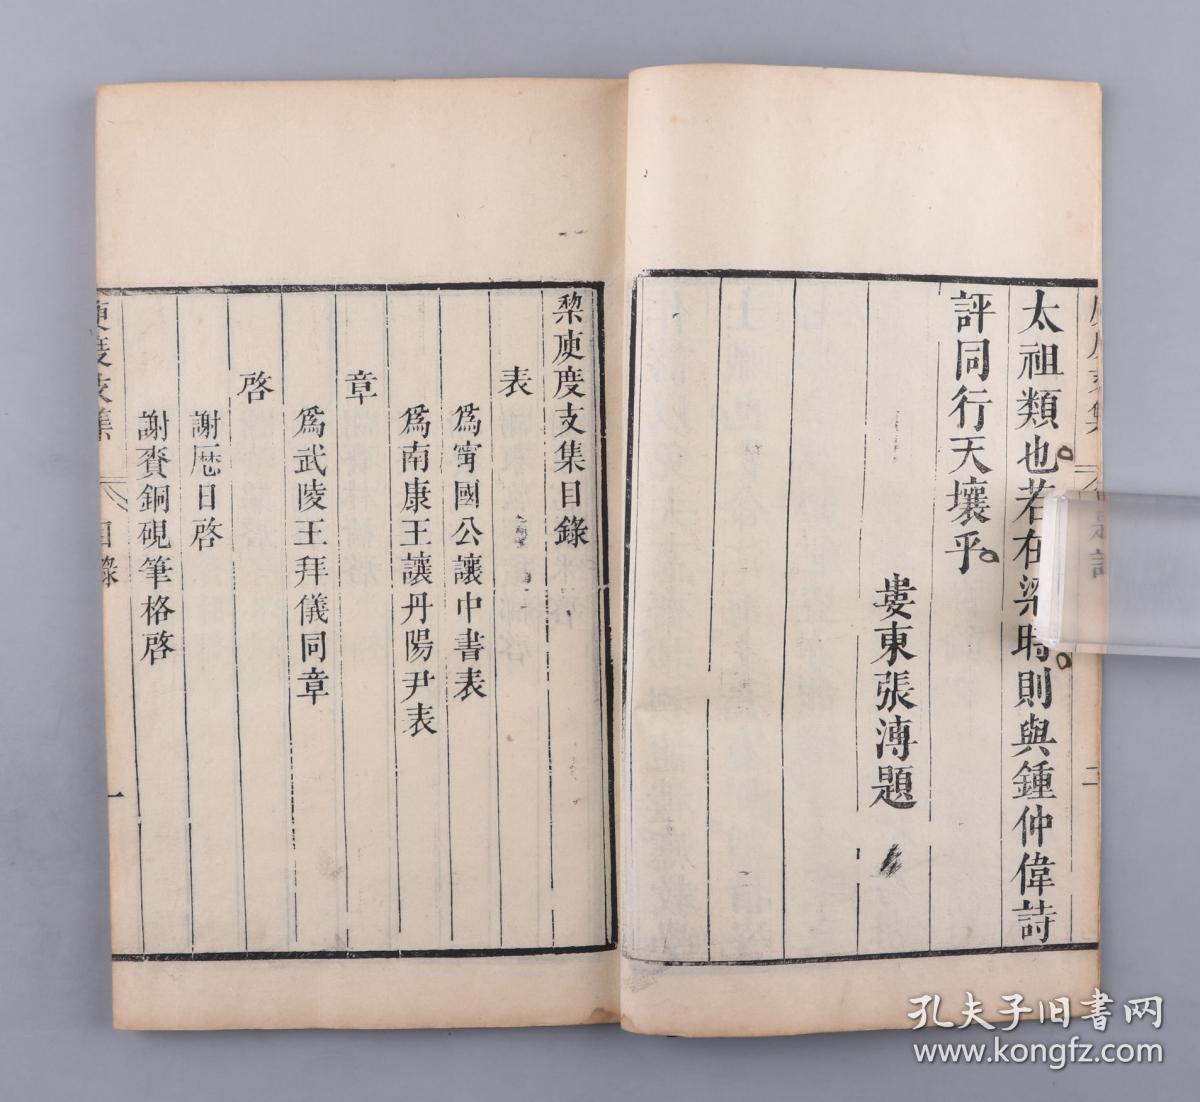 太祖類也若在梁時則與鍾仲偉詩
評同行天壤乎
婁東張溥題
二
梁庾度支集目錄
表
爲寧國公讓中書表
爲南康王讓丹陽尹表
章
爲武陵王拜儀同章
啓
謝曆日啓
謝賚銅硯筆格啓
庾度支集
目錄
一
孔夫子旧书网
www.kongfz.com